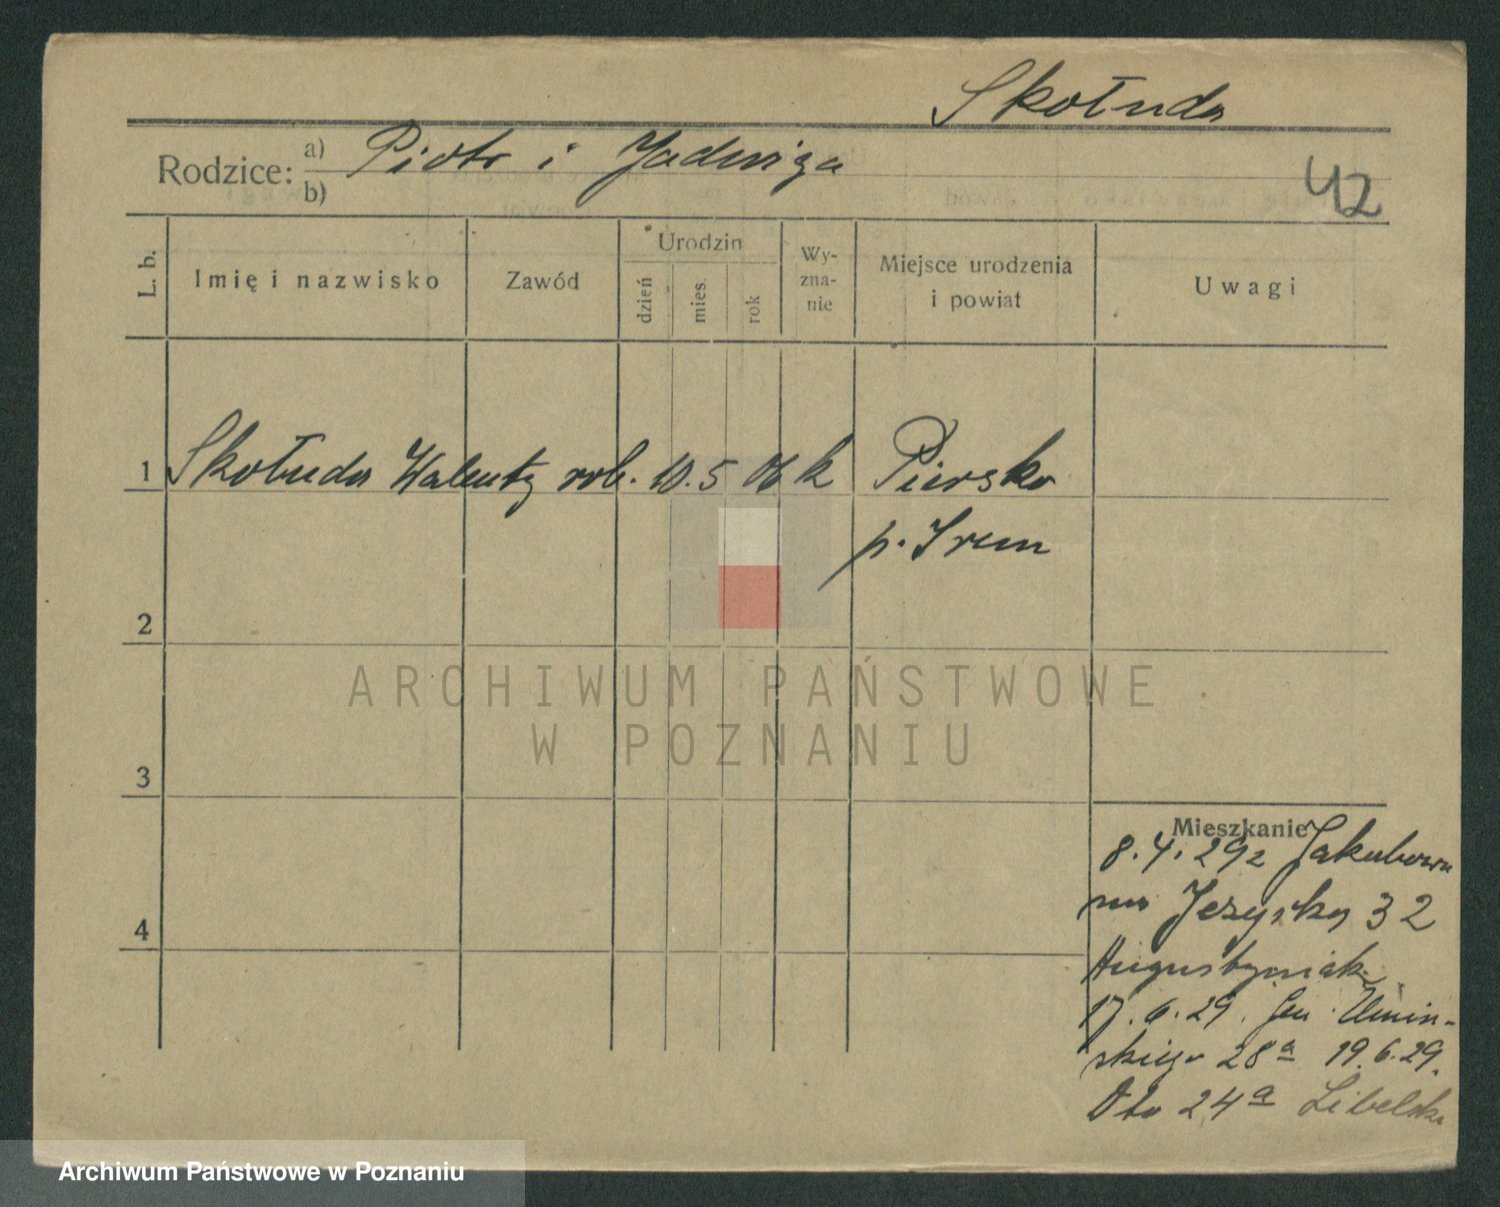 Skołuda
Rodzice: a) Piotr i Jadwiga
b)
42
L. b.
Imię i nazwisko
Zawód
Urodzin
dzień
mies.
rok
Wy-
zna-
nie
Miejsce urodzenia
i powiat
Uwagi
1 Skołuda Walenty rob. 10. 5 06 k Piersko
p. Śrem
2
3
4
Mieszkanie
8. 4. 29 z Jakubowa
Jeżycka 32
Augustyniak
17. 6. 29. Gen. Umiń-
skiego 28a 19. 6. 29.
24a Libelta
ARCHIWUM PAŃSTWOWE
W POZNANIU
Archiwum Państwowe w Poznaniu